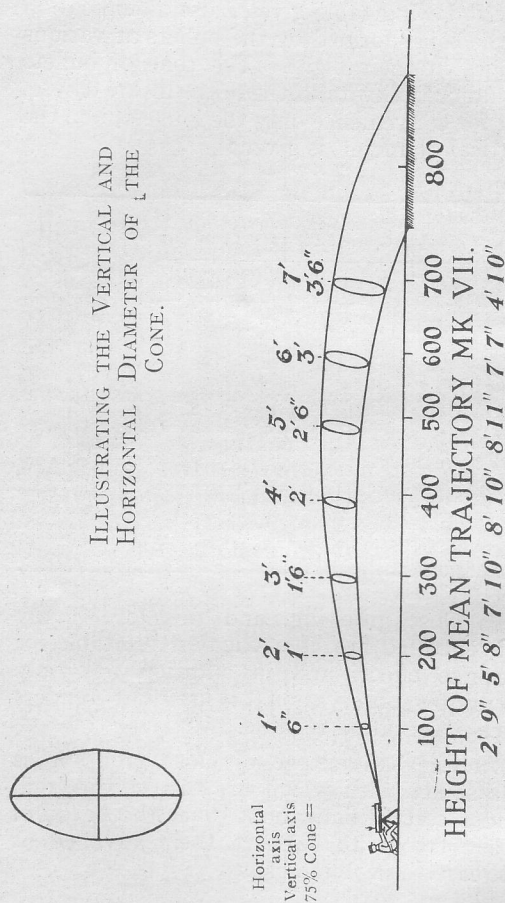 ILLUSTRATING THE VERTICAL AND
HORIZONTAL DIAMETER OF THE
CONE.
Horizontal
axis
Vertical axis
75% Cone =
1' 2' 3' 4' 5' 6' 7'
6" 1' 1'6" 2' 2'6" 3' 3'6"
100 200 300 400 500 600 700 800
HEIGHT OF MEAN TRAJECTORY MK VII.
2' 9" 5' 8" 7' 10" 8' 10" 8'11" 7' 7" 4' 10"